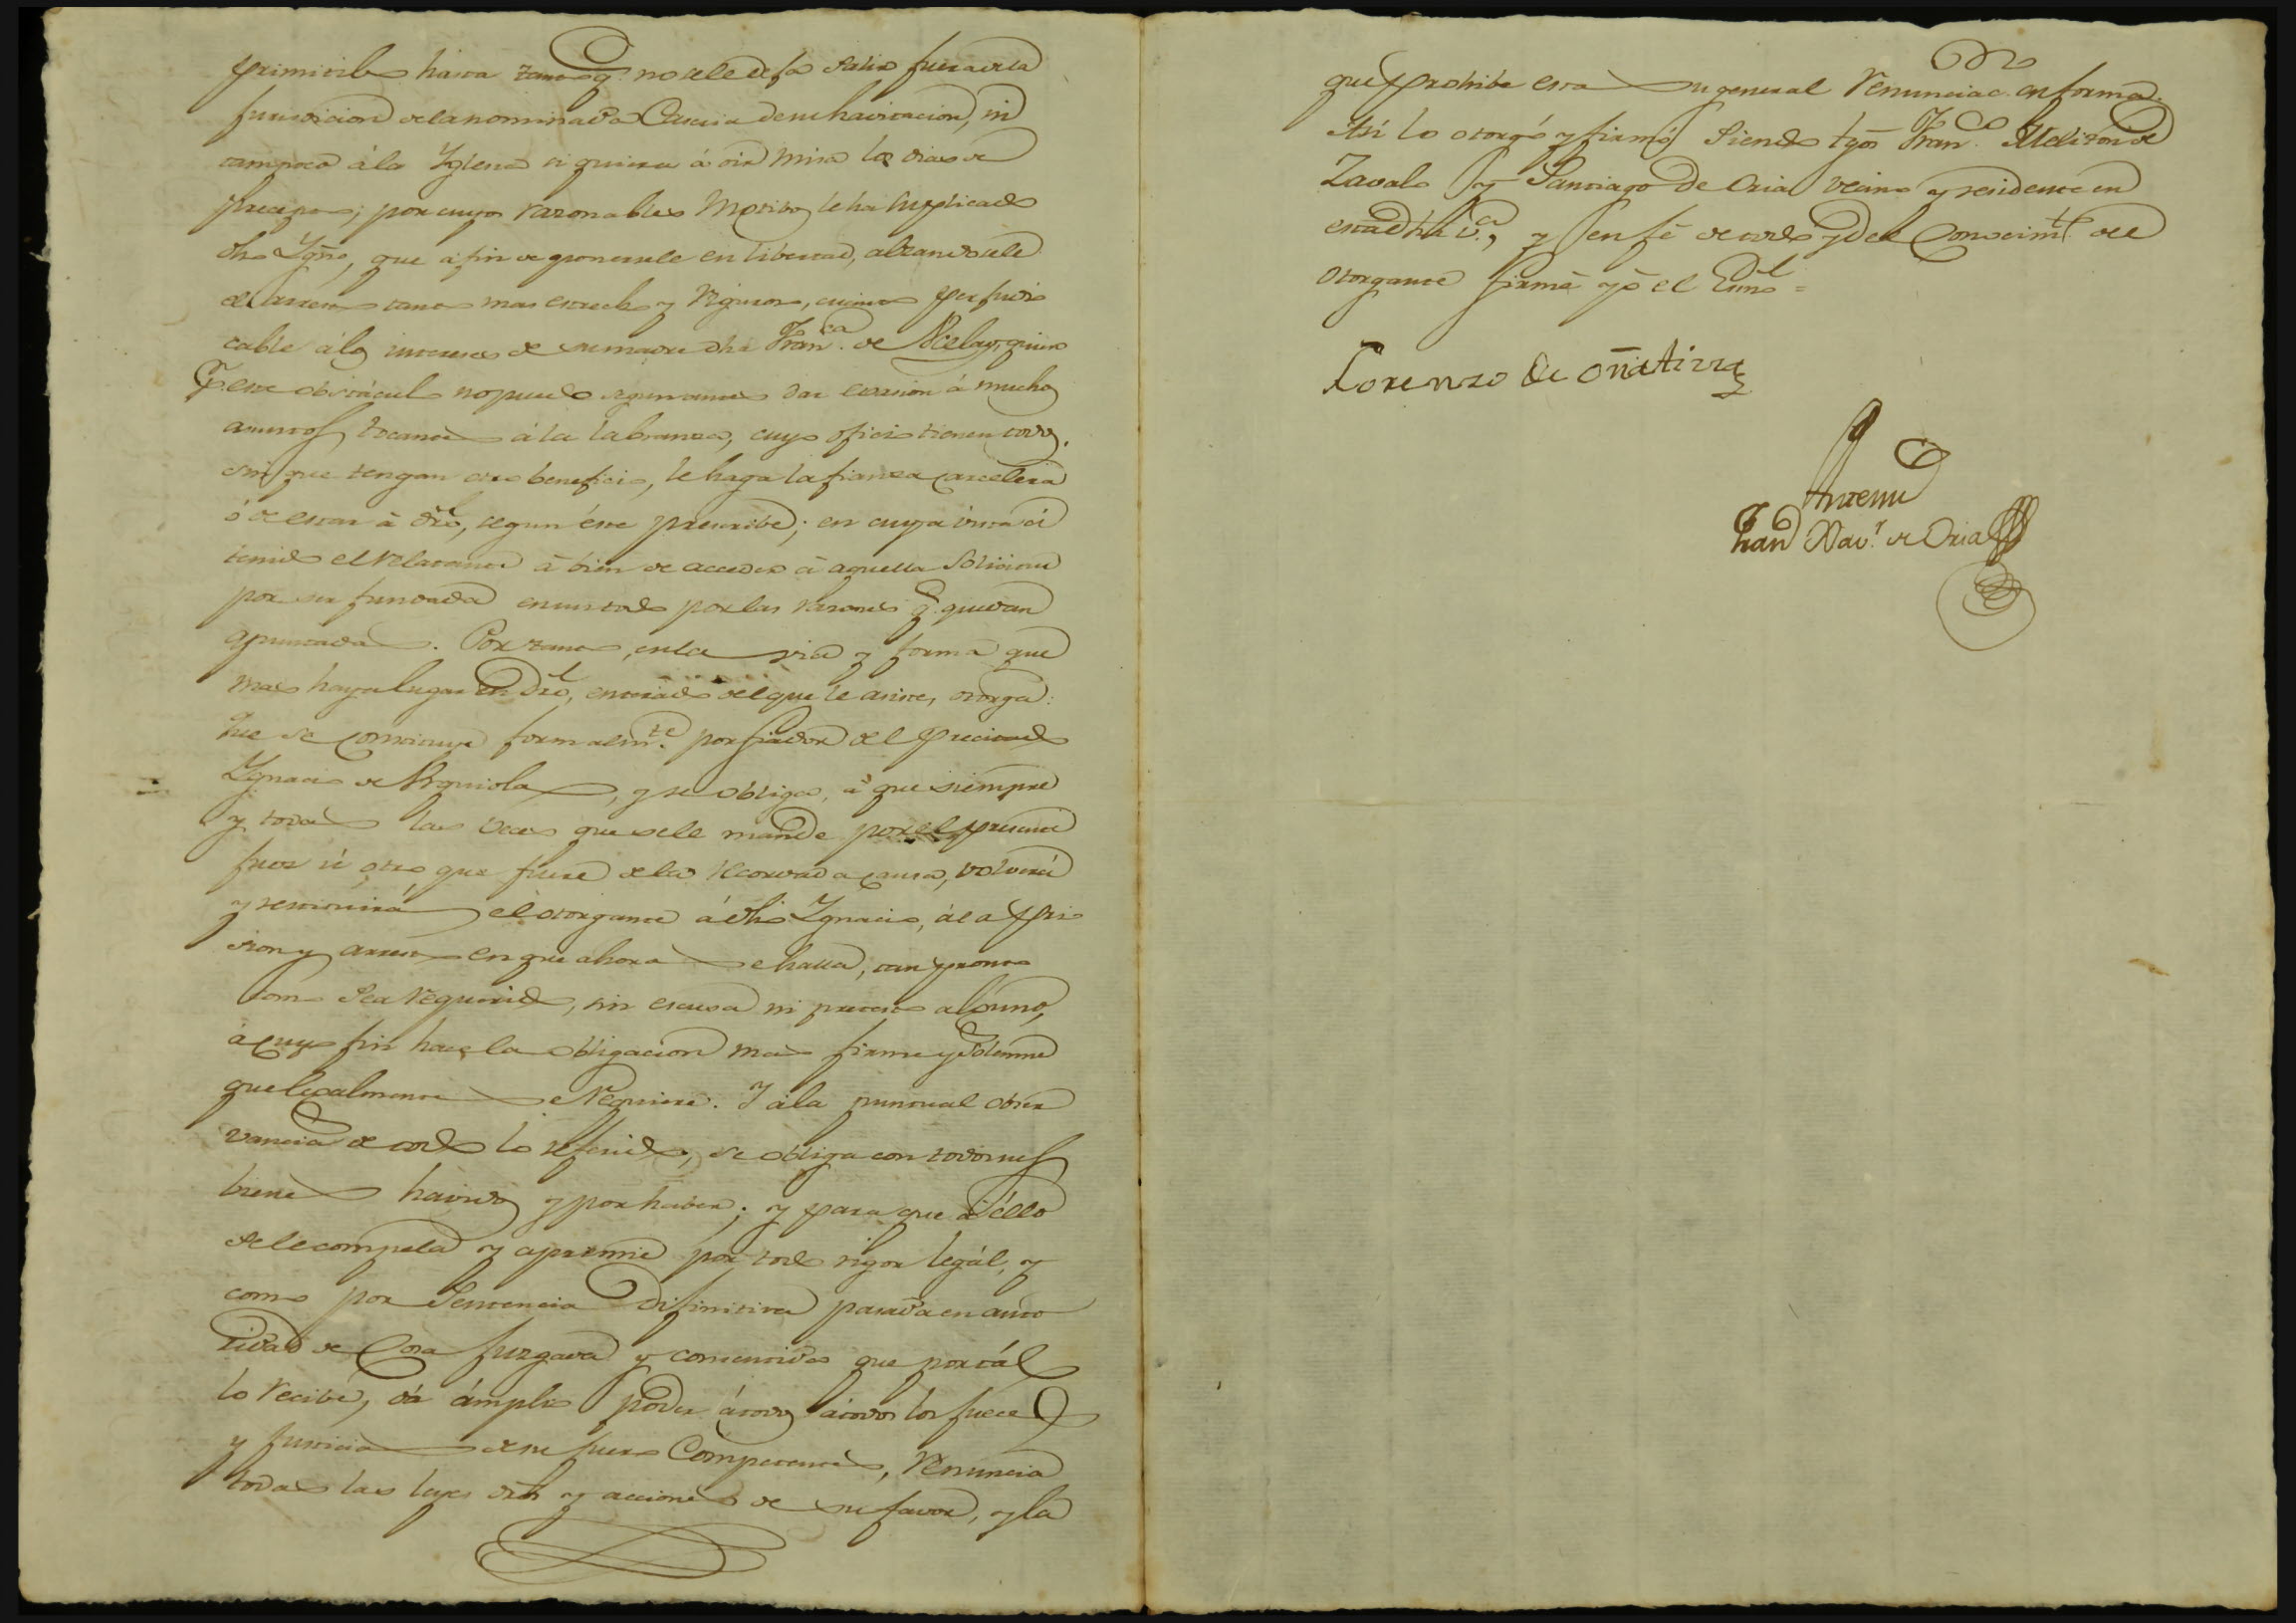 primirible hasta tanto q.e no se le deja salir fuera de la
jurisdicion de la nominada Caseria de su havitacion, ni
tampoco á la Yglesia si quiera á oir Misa los dias de
precepto; por cuyos razonables Motibos le ha suplicado
dho Ygn.o, que á fin de ponersele en libertad, alzandosele
el arresto tanto mas estrecho y riguroso, cuanto perjudi
cable á los intereses de su madre dha Fran.ca de Vcelay, quien
p.r este obstáculo no puede seguramente dar evasion á muchos
asuntos tocantes á la labranza, cuyo oficio tienen todos,
sin que tengan otro beneficio, le haga la fianza carcelera
ó de estar á dro, segun éste prescribe; en cuya vista á
tenido el relatante á bien de acceder á aquella Solicitud
por ser fundada en un todo por las razones q.e quedan
apuntadas. Por tanto, en la via y forma que
mas haya lugar en dro, enterado del que le asiste, otorga:
Que se constituye formalm.te por fiador del precitado
Ygnacio de Urquiola, y se obliga, á que siempre
y todas las veces que se le mande por el presente
juez ú otro que fuere de la recordada causa, volverá
y restituirá el otorgante á dho Ygnacio, á la pri
sion y arresto en que ahora se halla, tan pronto
como sea requerido, sin escusa ni pretesto alguno,
á cuyo fin hace la obligacion mas firme y Solemne
que legalmente se requiere. Y á la puntual obser
vancia de todo lo referido, se obliga con todos sus
bienes havidos y por haber; y para que á ello
se le compela y apremie por todo rigor legál, y
como por Sentencia difinitiva pasada en auto
ridad de Cosa juzgada y consentida que por tál
lo recibe, dá ámplio poder á todos á todos los jueces
y justicias de su fuero Competentes, renuncia
todas las leyes dros y acciones de su favor, y la
que prohibe esta su general renunciac. en forma.
Asi lo otorgó y firmó siendo tgos Fran.co Meliton de
Zavala y Santiago de Oria vecino y residente en
esta dha v.a, y en fé de todo y del Conocim.to del
otorgante firmé yo el Essno =
Lorenzo de oñativia
Antemi
Fran Xav.r de Oria